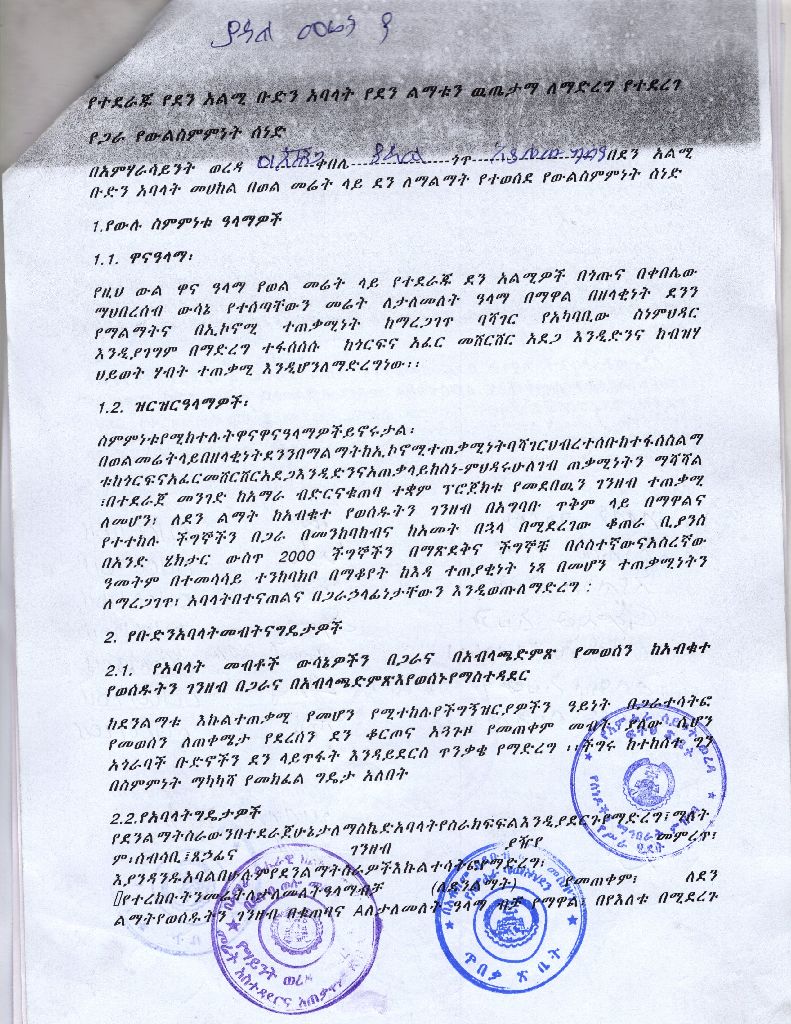 የተደራጁ የደን አልሚ ቡድን አባላት የደን ልማቱን ዉጤታማ ለማድረግ የተደረገ
የጋራ የውልስምምነት ሰነድ
በአምሃራሳይንት ወረዳ ቀበሌ ጎጥ በደን አልሚ
ቡድን አባላት መሀከል በወል መሬት ላይ ደን ለማልማት የተወሰደ የውልስምምነት ሰነድ
1.የውሉ ስምምነቱ ዓላማዎች
1.1. ዋናዓላማ፡
የዚህ ውል ዋና ዓላማ የወል መሬት ላይ የተደራጁ ደን አልሚዎች በጎጡና በቀበሌው
ማህበረሰብ ውሳኔ የተሰጣቸውን መሬት ለታለመለት ዓላማ በማዋል በዘላቂነት ደንን
የማልማትና በኢኮኖሚ ተጠቃሚነት ከማረጋገጥ ባሻገር የአካባቢው ስነምህዳር
እንዲያገግም በማድረግ ተፋሰሰሱ ከጎርፍና አፈር መሸርሸር አደጋ እንዲድንና ከብዝሃ
ህይወት ሃብት ተጠቃሚ እንዲሆንለማድረግነው፡፡
1.2. ዝርዝርዓላማዎች፡
ስምምነቱየሚከተሉትዋናዋናዓላማዎችይኖሩታል፡
በወልመሬትላይበዘላቂነትደንንበማልማትከኢኮኖሚተጠቃሚነትባሻገርህብረተሰቡከተፋሰስልማ
ቱከጎርፍናአፈርመሸርሸርአደጋእንዲድንናአጠቃላይከስነ-ምህዳሩሁለገብ ጠቃሚነትን ማሻሻል
፣በተደራጀ መንገድ ከአማራ ብድርናቁጠባ ተቋም ፕሮጀክቱ የመደበዉን ገንዘብ ተጠቃሚ
ለመሆን፣ ለደን ልማት ከአብቁተ የወሰዱትን ገንዘብ በአግባቡ ጥቅም ላይ በማዋልና
የተተከሉ ችግኞችን በጋራ በመንከባከብና ከአመት በኋላ በሚደረገው ቆጠራ ቢያንስ
በአንድ ሄክታር ውስጥ 2000 ችግኞችን በማጽደቅና ችግኞቹ በሶስተኛውናአስረኛው
ዓመትም በተመሳሳይ ተንከባክቦ በማቆየት ከእዳ ተጠያቂነት ነጻ በመሆን ተጠቃሚነትን
ለማረጋገጥ፣ አባላትበተናጠልና በጋራኃላፊነታቸውን እንዲወጡለማድረግ ፡
2. የቡድንአባላትመብትናግዴታዎች
2.1. የአባላት መብቶች ውሳኔዎችን በጋራና በአብላጫድምጽ የመወሰን ከአብቁተ
የወሰዱትን ገንዘብ በጋራና በአብላጫድምጽእየወሰኑየማስተዳደር
ከደንልማቱ እኩልተጠቃሚ የመሆን የሚተከሉየችግኝዝርያዎችን ዓይነት በጋራተሳትፎ
የመወሰን ለጠቀሜታ የደረሰን ደን ቆርጦና አጓጉዞ የመጠቀም መብት ያለው ሲሆን
አጎራባች ቡድኖችን ደን ላይጥፋት እንዳይደርስ ጥንቃቄ የማድረግ ፡፡ችግሩ ከተከሰተ ግን
በስምምነት ማካካሻ የመክፈል ግዴታ አለበት
2.2.የአባላትግዴታዎች
የደንልማትስራውንበተደራጀሁኔታለማስኬድአባላትየስራክፍፍልእንዲያደርጉየማድረግ፣ማለት
ም፣ሰብሳቢ፣ጸኃፊና ገንዘብ ያዥየ መምረጥ፣
እያንዳንዱአባልበሁሉምየደንልማትስራዎችእኩልተሳትፎየማድረግ፣
የተረከቡትንመሬትለታለመለትዓላማብቻ (ለደንልማት) የመጠቀም፣ ለደን
ልማትየወሰዱትን ገንዘብ በቁጠባና ለታለመለት ዓላማ ብቻ የማዋል፣ በየእለቱ በሚደረጉ